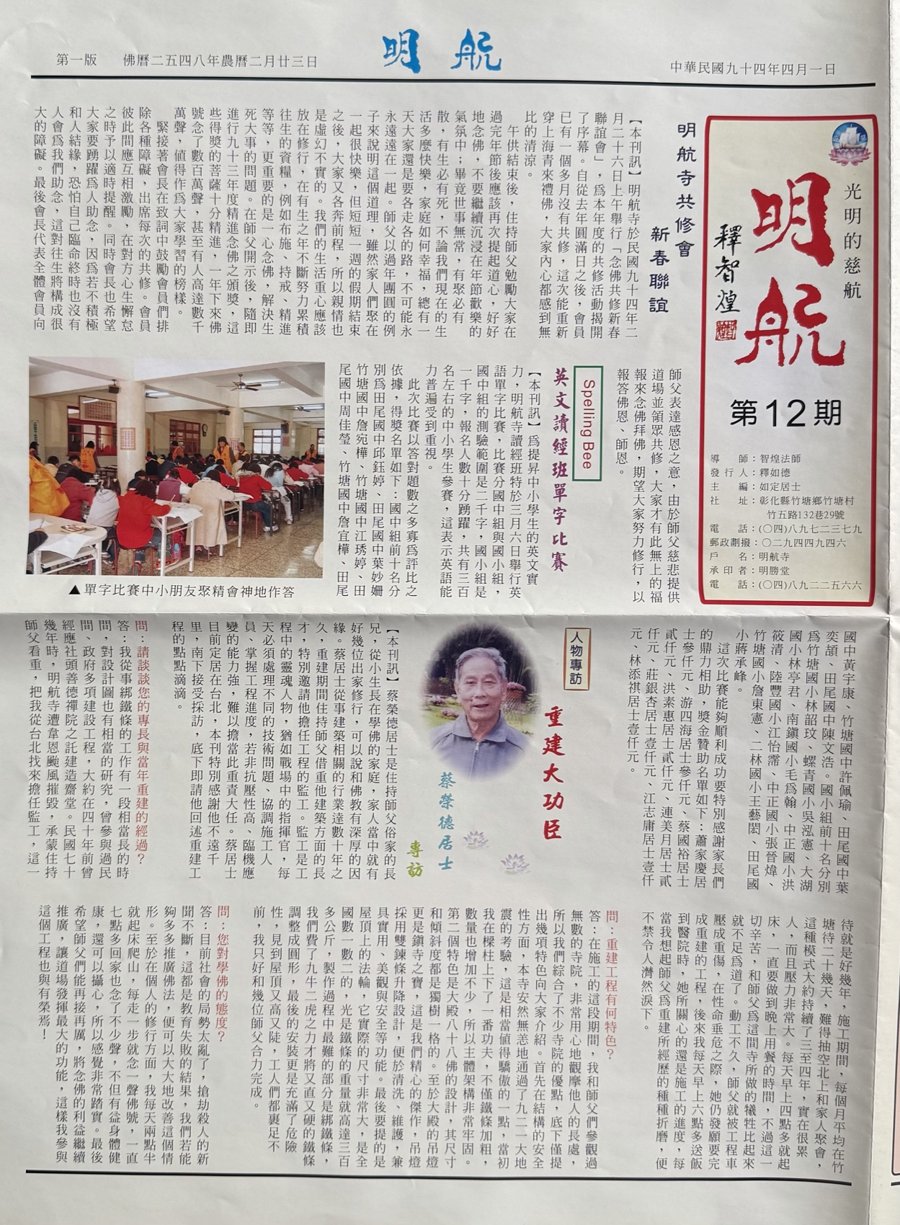 第一版　佛曆二五四八年農曆二月廿三日
明航
中華民國九十四年四月一日
光明的慈航
明航
釋智煌
第12期
導師：智煌法師
發行人：釋如德
主編：如定居士
社址：彰化縣竹塘鄉竹塘村
竹五路132巷29號
電話：(〇四)八九七二三七九
郵政劃撥：〇二九四四九四六
戶名：明航寺
承印者：明勝堂
電話：(〇四)八九二二五六六
明航寺共修會
新春聯誼
【本刊訊】明航寺於民國九十四年二
月二十六日上午舉行「念佛共修新春
聯誼會」，為本年度的共修活動揭開
了序幕。自從去年圓滿日之後，會員
已有一個多月沒有共修，這次能重新
穿上海青來禮佛，大家內心都感到無
比的清涼。
午供結束後，住持師父勉勵大家在
過完年節後應該再次提起道心，好好
地念佛，不要繼續沉浸在年節歡樂的
氣氛中；畢竟世事無常，有聚必有
散，有生必有死，不論我們現在的生
活多麼快樂，家庭如何幸福，總有一
天大家還是要各走各的路，不可能永
永遠遠在一起。師父以過年團圓的例
子來說明這個道理，雖然家人們聚在
一起很快樂，但短短一週的假期結束
之後，大家又各奔前程，所以親情也
是虛幻不實的。我們的生活重心應該
放在修行，在有生之年不斷努力累積
往生的資糧，例如布施、持戒、精進
等等，更重要的是一心念佛，解決生
死大事的問題。在師父開示後，隨即
進行九十三年度精進念佛之頒獎，這
些得獎的菩薩十分精進，一年下來佛
號念了數百萬聲，甚至有人高達數千
萬聲，值得作為大家學習的榜樣。
緊接著會長在致詞中鼓勵會員們排
除各種障礙，出席每次的共修。會員
彼此間應互相激勵，在對方心生懈怠
之時予以適時提醒。同時會長也希望
大家要踴躍為人助念，因為若不積極
和人結緣，恐怕自己臨命終時也沒有
人會為我們助念，這對往生將構成很
大的障礙。最後會長代表全體會員向
師父表達感恩之意，由於師父慈悲提供
道場並領眾共修，大家才有此無上的福
報來念佛拜佛，期望大家努力修行，以
報答佛恩、師恩。
Spelling Bee
英文讀經班單字比賽
【本刊訊】為提昇中小學生的英文實
力，明航寺讀經班特於三月六日舉行英
語單字比賽，比賽分國中組與國小組，
國中組的測驗範圍是二千字，國小組是
一千字，報名人數十分踴躍，共有三百
名左右的中小學生參賽，這表示英語能
力普遍受到重視。
此次比賽以答對題數之多寡為評比之
依據，得獎名單如下：國中組前十名分
別為田尾國中邱鈺婷、田尾國中葉妙姍
竹塘國中詹宛樺、竹塘國中江琇婷、田
尾國中周佳瑩、竹塘國中詹宜樺、田尾
▲單字比賽中小朋友聚精會神地作答
國中黃宇康、竹塘國中許佩瑜、田尾國中葉
奕頡、田尾國中陳文浩。國小組前十名分別
為竹塘國小林韶玟、螺青國小吳泓憲、大湖
國小林亭君、南鎮國小毛為翰、中正國小洪
筱清、陸豐國小江怡霈、中正國小張晉煒、
竹塘國小詹東憲、二林國小王藝閎、田尾國
小蔣承峰。
這次比賽能夠順利成功要特別感謝家長們
的鼎力相助，獎金贊助名單如下：蕭家慶居
士參仟元、游四海居士參仟元、蔡國裕居士
貳仟元、洪素惠居士貳仟元、連美月居士貳
仟元、莊銀杏居士壹仟元、江志庸居士壹仟
元、林添祺居士壹仟元。
人物專訪
重建大功臣
蔡榮德居士
專訪
【本刊訊】蔡榮德居士是住持師父俗家的長
兄，從小生長在學佛的家庭，家人當中就有
好幾位出家修行，可以說和佛教有深厚的因
緣。蔡居士從事建築相關的行業達數十年之
久，重建期間住持師父借重他建築方面的長
才，特別邀請他擔任工程的監工。監工是工
程中的靈魂人物，猶如戰場中的指揮官，每
天必須處理不同的技術問題、協調施工人
員、掌握工程進度，若非抗壓性高、臨機應
變的能力強，難以擔當此重責大任。蔡居士
目前定居在台北，本刊特別感謝他不遠千
里，南下接受採訪，底下即請他回述重建工
程的點點滴滴。
問：請談談您的專長與當年重建的經過？
答：我從事綁鐵條的工作有一段相當長的時
間，對設計圖也有相當的研究，曾參與過民
間、政府多項建設工程，大約在四十年前曾
經應社頭善德禪院之託建造齋堂。民國七十
幾年時，明航寺遭韋恩颱風摧毀，承蒙住持
師父看重，把我從台北找來擔任監工，這一
待就是好幾年，施工期間，每個月平均在竹
塘待二十幾天，難得抽空北上和家人聚會，
這種模式大約持續了三至四年，實在很累
人，而且壓力非常大。每天早上四點多就起
床，一直要做到晚上用餐的時間，不過這一
切辛苦，和師父為這間寺所做的犧牲比起來
就不足為道了。動工不久，師父就被工程車
壓成重傷，在性命垂危之際，她仍發願要完
成重建的工程，後來我每天早上六點多送飯
到醫院時，她所關心的還是施工的進度，每
當我想起師父為重建所經歷的種種折磨，便
不禁令人潸然淚下。
問：重建工程有何特色？
答：在施工的這段期間，我和師父們參觀過
無數的寺院，非常用心地觀摩他人的長處，
所以我們綜合了不少寺院的優點，底下僅提
出幾項特色向大家介紹。首先在結構的安全
性方面，本寺安然無恙地通過了九二一大地
震的考驗，這是相當值得驕傲的一點，當初
我在樑柱上下了一番功夫，不僅鐵條加粗，
數量也增加不少，所以主體架構非常牢固。
第二個特色是大殿八十八佛的設計，其尺寸
和傾斜度都是獨樹一格的。至於大殿的吊燈
更是鎮寺之寶，這是我們精心的傑作，吊燈
採用雙鍊條升降設計，便於清洗、維護，兼
具實用、美觀與安全等功能。最後要提的是
屋頂上的法輪，它實際的尺寸非常大，是全
國數一數二的，光是鐵條的重量就高達三百
多公斤，製作過程中最難的部分是綁鐵條，
我們費了九牛二虎之力才將又直又硬的鐵條
調整成圓形，最後的安裝更是充滿了危險
性，見到屋頂又高又陡，工人們都裹足不
前，我只好和幾位師父合力完成。
問：您對學佛的態度？
答：目前社會的局勢太亂了，搶劫殺人的新
聞不斷，這都是教育失敗的結果，我們若能
夠多多推廣佛法，便可以大大地改善這個情
形。至於在個人的修行方面，我每天兩點半
就起床爬山，每走一步就念一聲佛號，一直
七點多回家也念了不少聲，不但有益身體健
康，還可以攝心，所以感覺非常踏實。最後
希望師父們能再接再厲，將念佛的利益繼續
推廣，讓道場發揮最大的功能，這樣我參與
這個工程也與有榮焉！